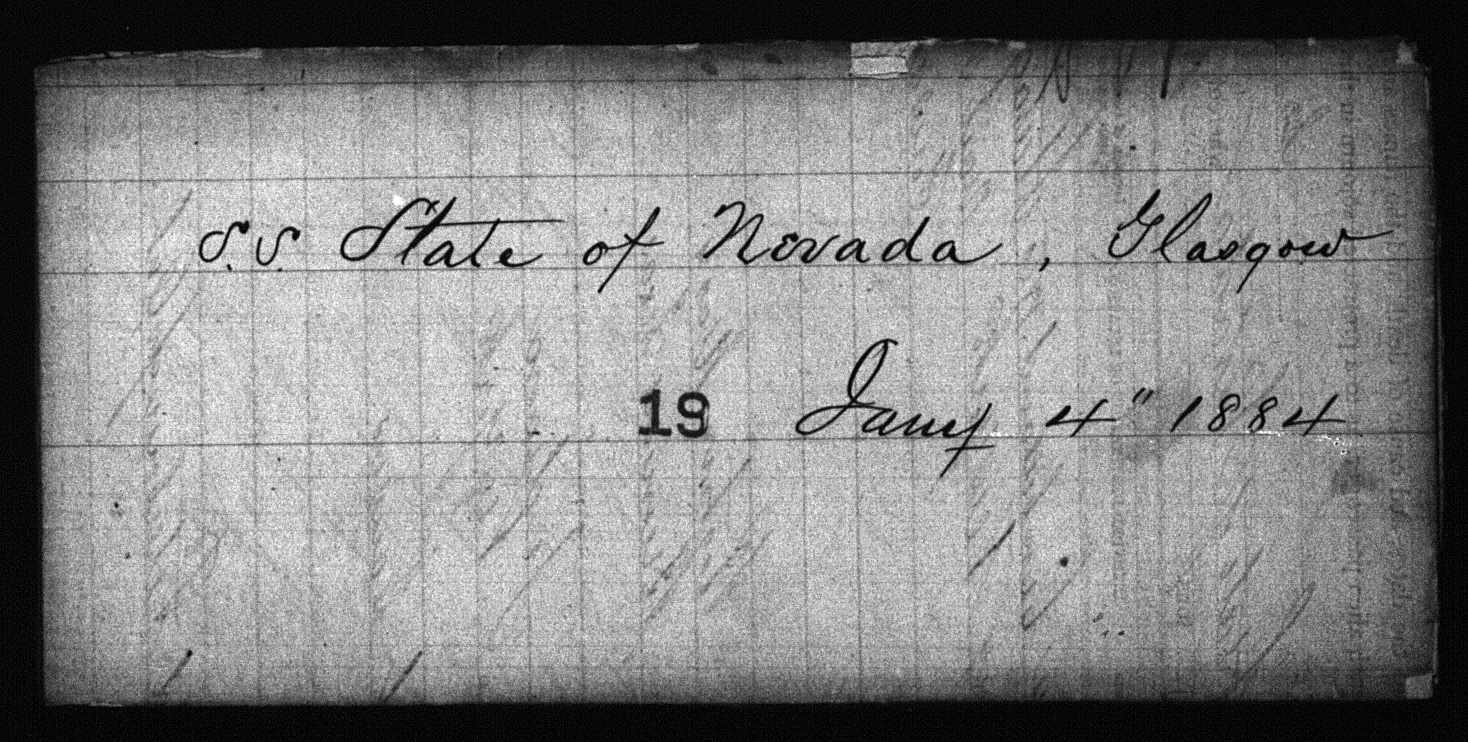 S.S. State of Nevada, Glasgow
19 Jany 4" 1884